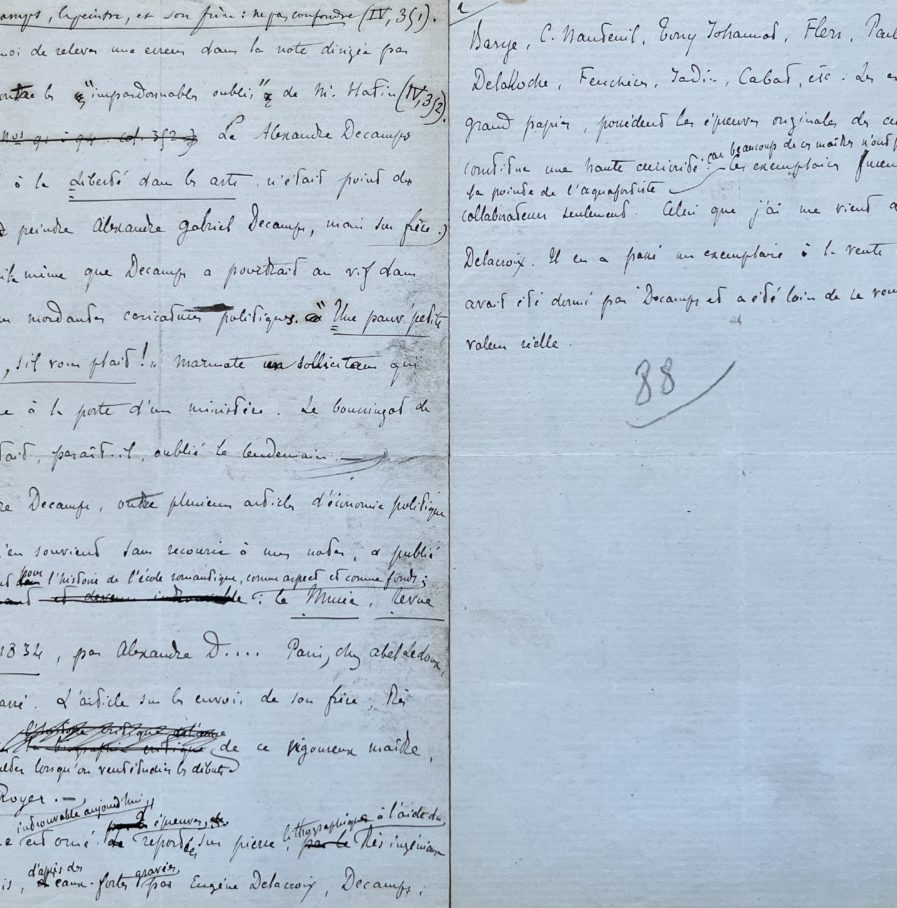 amps, le peintre, et son frère : ne pas confondre (IV, 351).
moi de relever une erreur dans la note dirigée par
contre les "impardonnables oublis" de Mr. Hatin (IV, 352).
Le Alexandre Decamps
à la Liberté dans les arts n'était point du
peintre Alexandre Gabriel Decamps, mais son frère.
même que Decamps a pourtrait au vif dans
mordantes caricatures politiques. "Une pauv' petite
, s'il vous plait !" marmote un solliciteur qui
à la porte d'un ministère. Le bousingot de
tait, paraît-il, oublié le lendemain. —
re Decamps, outre plusieurs articles d'économie politique
m'en souvient sans recourir à mes notes, a publié
pour l'histoire de l'école romantique, comme aspect et comme fonds ;
et devenu introuvable : le Musée, revue
1834, par Alexandre D.... Paris, chez Abel Ledoux,
L'article sur les envois de son frère, très
de ce vigoureux maître,
lorsqu'on veut étudier les débuts
Royer. —
introuvable aujourd'hui
épreuves, lithographiques à l'aide du
est orné de reportées sur pierre, par le très ingénieux
d'après des gravées
is, eaux-fortes par Eugène Delacroix, Decamps,
2
Barye, C. Nanteuil, Tony Johannot, Flers, Paul
Delaroche, Feuchère, Jadin, Cabat, etc. Les ex
grand papier, possèdent les épreuves originales des
constitue une haute curiosité : car beaucoup de ces maîtres n'ont
la pointe de l'aquafortiste — Les exemplaires furent
collaborateurs seulement. Celui que j'ai me vient d
Delacroix. Il en a passé un exemplaire à la vente
avait été donné par Decamps et a été loin de se ven
valeur réelle.
88